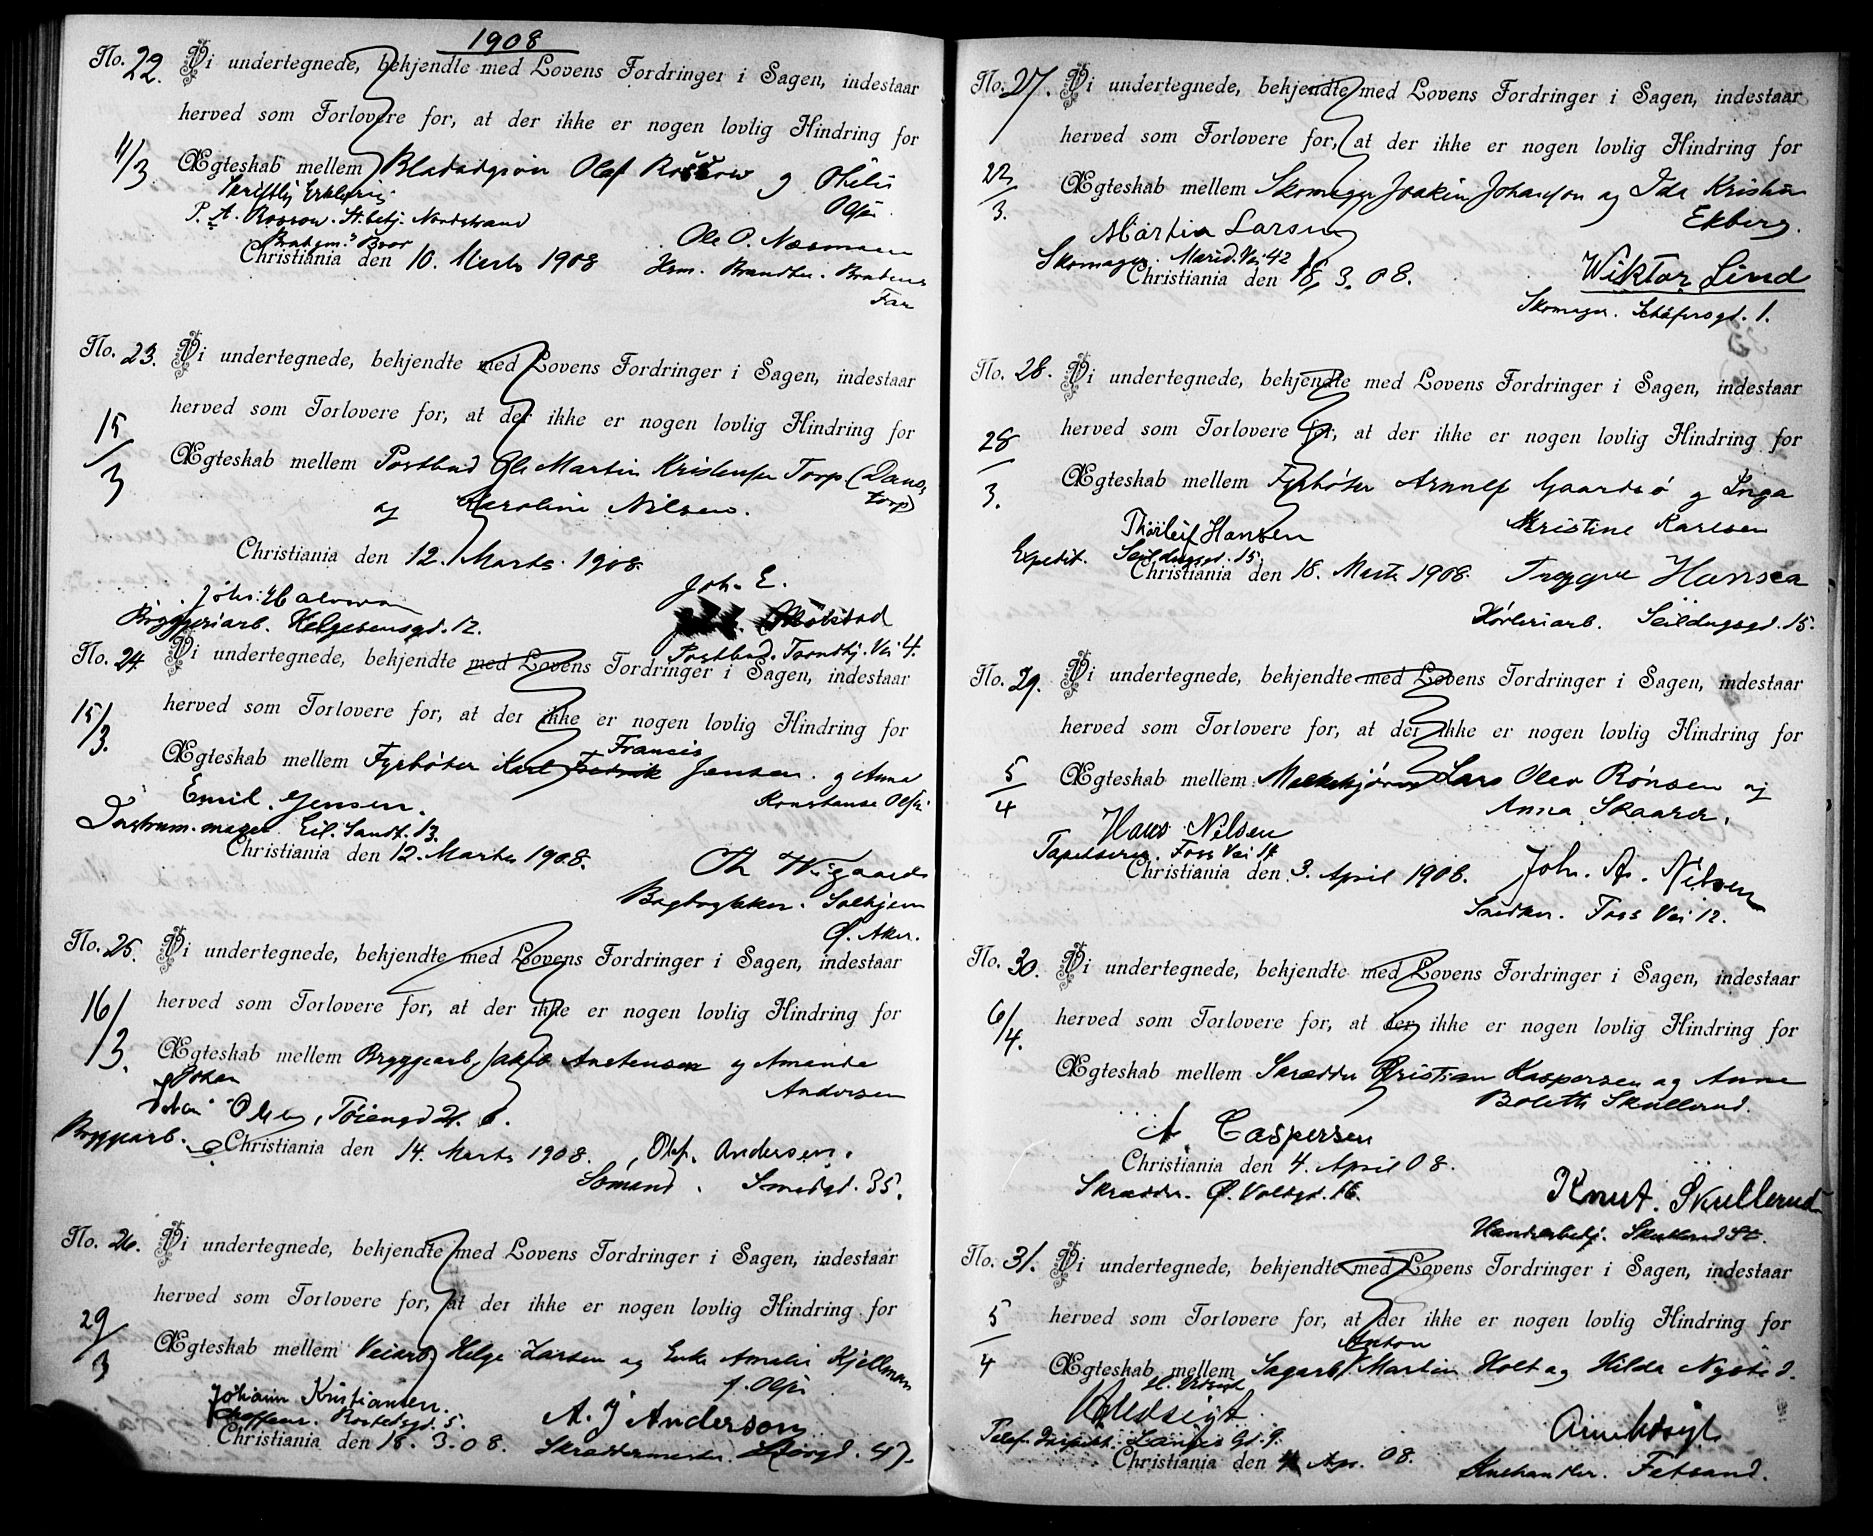 1908
No. 22. Vi undertegnede, bekjendte med Lovens Fordringer i Sagen, indestaar
herved som Forlovere for, at der ikke er nogen lovlig Hindring for
11/3 Ægteskab mellem Olaf Rossow og Otilie
Skriftlig Erklæring Olsen
P. A. Rossow. St.betj. Nordstrand
Brudgm.s Bror Ole O. Næsmoen
Christiania den 10. Marts 1908 Hsm. Brandbu. Brudens
Far
No. 23. Vi undertegnede, bekjendte med Lovens Fordringer i Sagen, indestaar
herved som Forlovere for, at der ikke er nogen lovlig Hindring for
15/3 Ægteskab mellem Postbud Ole Martin Kristensen Torp
og Karoline Nilsen.
Christiania den 12. Marts 1908.
Joh. E.
Joh: Halvorsen
Bryggeriarb. Helgesensgd. 12. Molstad
Postbud. Trondhj. Vei 4.
No. 24 Vi undertegnede, bekjendte med Lovens Fordringer i Sagen, indestaar
herved som Forlovere for, at der ikke er nogen lovlig Hindring for
15/3. Francis
Ægteskab mellem Fyrbøter Karl Fredrik Jensen. og Anna
Emil Jensen. Konstanse Olsen
Instrum.mager. Eil. Sundt. 13.
Christiania den 12. Marts 1908.
Th Wigaard
Bogtrykker. Solhjem
Ø. Aker.
No. 25. Vi undertegnede, bekjendte med Lovens Fordringer i Sagen, indestaar
herved som Forlovere for, at der ikke er nogen lovlig Hindring for
16/3. Ægteskab mellem Bryggearb. Jakob Anstensen og Amanda
Johan Andersen
Olsen, Tøiengd 21.
Bryggearb. Christiania den 14. Marts 1908. Olaf. Andersen.
Sømand. Smedgd. 35.
No. 26. Vi undertegnede, bekjendte med Lovens Fordringer i Sagen, indestaar
herved som Forlovere for, at der ikke er nogen lovlig Hindring for
29/3 Ægteskab mellem Veiarb. Helge Larsen og Enke Amalie Kjellman
f. Olsen
Johann Kristiansen.
Rostedsgd. 5. A. J Anderson
Christiania den 18. 3. 08. Skræddermester. 47.
No. 27. Vi undertegnede, bekjendte med Lovens Fordringer i Sagen, indestaar
herved som Forlovere for, at der ikke er nogen lovlig Hindring for
22/3. Ægteskab mellem Skomager Joakim Johansson og Ida Kristin
Martin Larsen Ekberg.
Skomager. Marid. Vei 42
Christiania den 18. 3. 08. Wiktor Lind
Skomager. Schäfersgd. 1.
No. 28. Vi undertegnede, bekjendte med Lovens Fordringer i Sagen, indestaar
herved som Forlovere for, at der ikke er nogen lovlig Hindring for
28/3. Ægteskab mellem Fyrbøter Arnulf Gaardsø og Inga
Thorleif Hansen Kristine Karlsen
Expedit. Seildugsgd. 15.
Christiania den 18. Marts 1908. Trygve Hansen
Seildugsgd. 15.
No. 29. Vi undertegnede, bekjendte med Lovens Fordringer i Sagen, indestaar
herved som Forlovere for, at der ikke er nogen lovlig Hindring for
5/4 Ægteskab mellem Melkekjører Lars Olav Rønsen og
Anna Skaarer.
Hans Nilsen
Tapetserer. Foss Vei 17
Christiania den 3. April 1908. Joh. A. Nilsen
Snedker. Foss Vei 12.
No. 30. Vi undertegnede, bekjendte med Lovens Fordringer i Sagen, indestaar
herved som Forlovere for, at der ikke er nogen lovlig Hindring for
6/4. Ægteskab mellem Skrædder Kristian Kaspersen og Anne
Boletth Skullerud.
A. Caspersen
Christiania den 4. April 08.
Skrædder. Ø. Voldgd. 16. Knut. Skullerud
Handelsbetj. Skullerud St.
No. 31. Vi undertegnede, bekjendte med Lovens Fordringer i Sagen, indestaar
herved som Forlovere for, at der ikke er nogen lovlig Hindring for
5/4 Anton
Ægteskab mellem Sagarb. Martin Holt og Hilda Nysted.
H. Udsigt
H Udsigt.
Telef. Inspekt. Langes Gd. 9. Arne Udsigt
Christiania den 4 Apr. 08. Fetsund.